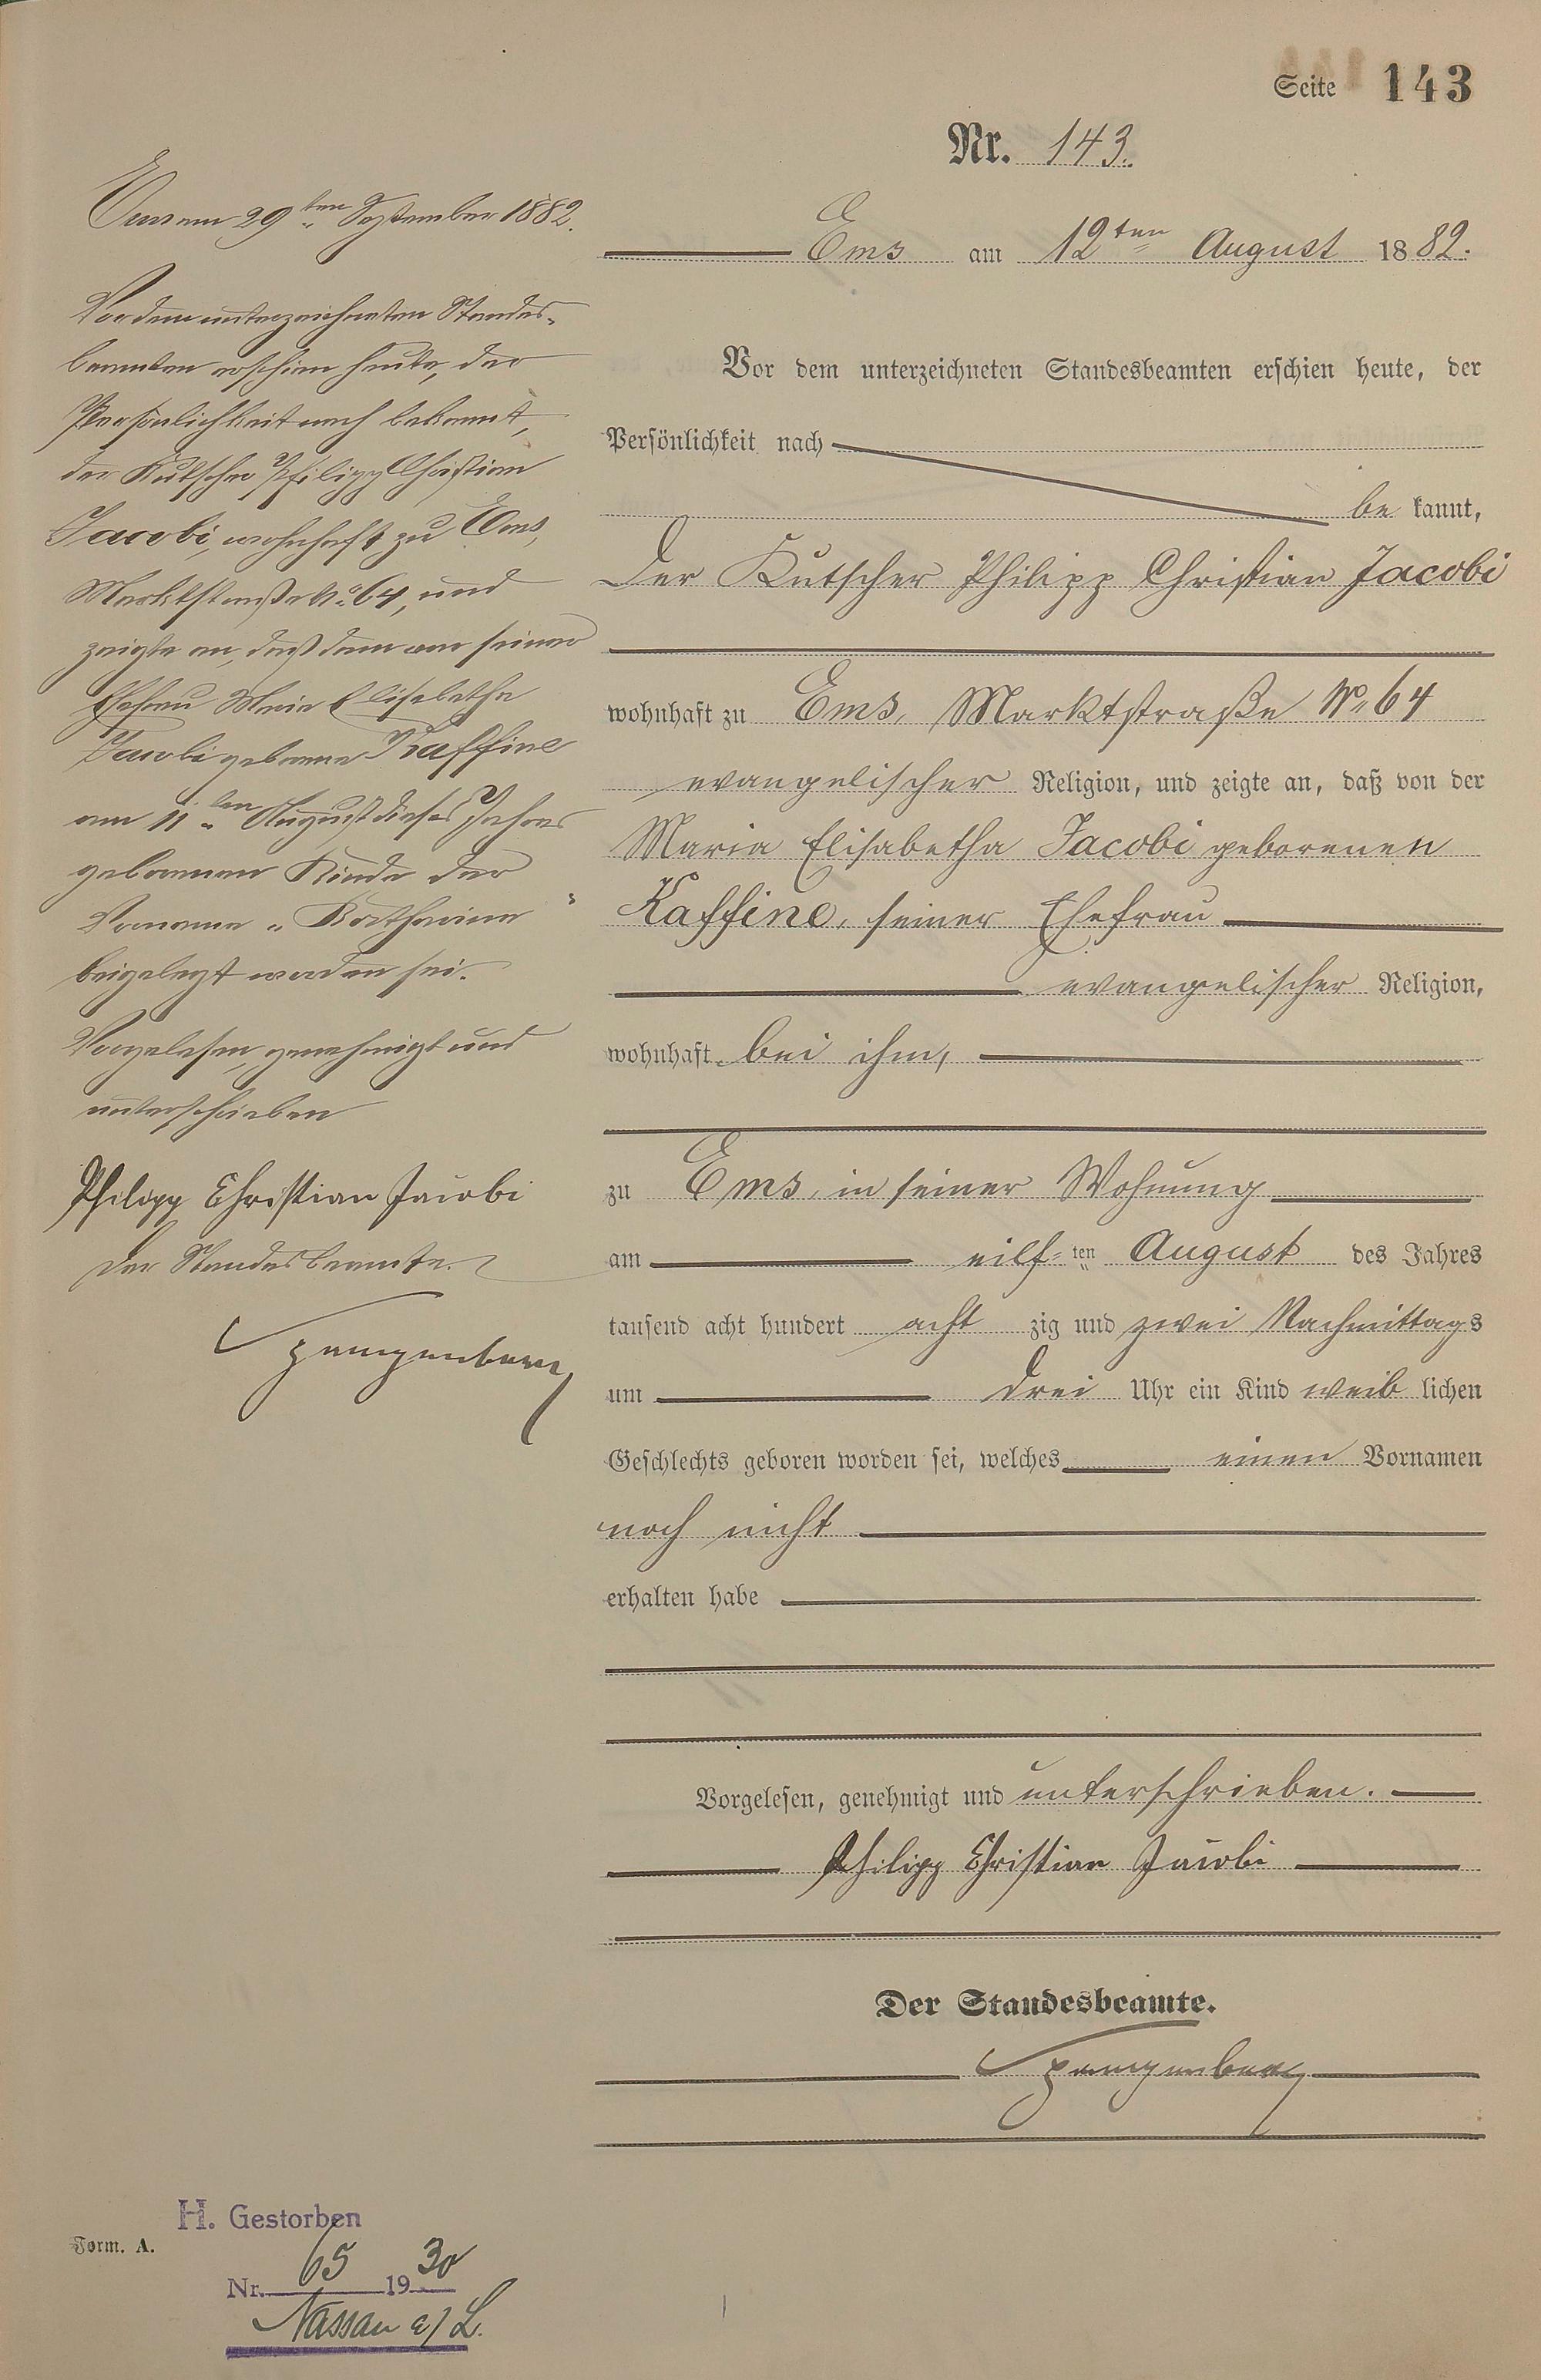 Seite 143
Nr. 143.
Ems am 12ten August 1882.
Vor dem unterzeichneten Standesbeamten erschien heute, der
Persönlichkeit nach
be kannt,
der Kutscher Philipp Christian Jacobi
wohnhaft zu Ems, Marktstraße No 64
evangelischer Religion, und zeigte an, daß von der
Maria Elisabetha Jacobi geborenen
Kaffine, seiner Ehefrau
evangelischer Religion,
wohnhaft bei ihm,
zu Ems, in seiner Wohnung
am eilf ten August des Jahres
tausend acht hundert acht zig und zwei Nachmittags
um drei Uhr ein Kind weib lichen
Geschlechts geboren worden sei, welches einen Vornamen
noch nicht
erhalten habe
Vorgelesen, genehmigt und unterschrieben.
Philipp Christian Jacobi
Der Standesbeamte.
Spangenberg
Ems am 29ten September 1882.
Vor dem unterzeichneten Standes-
beamten erschien heute, der
Persönlichkeit nach bekannt,
der Kutscher Philipp Christian
Jacobi, wohnhaft zu Ems,
Marktstraße No 64, und
zeigte an, daß dem von seiner
Ehefrau Maria Elisabetha
Jacobi geborne Kaffine
am 11ten August dieses Jahres
gebornen Kinde der
Vorname "Katharina"
beigelegt worden sei.
Vorgelesen, genehmigt und
unterschrieben
Philipp Christian Jacobi
Der Standesbeamte.
Spangenberg
H. Gestorben
Form. A.
Nr. 65 1930
Nassau a/L.